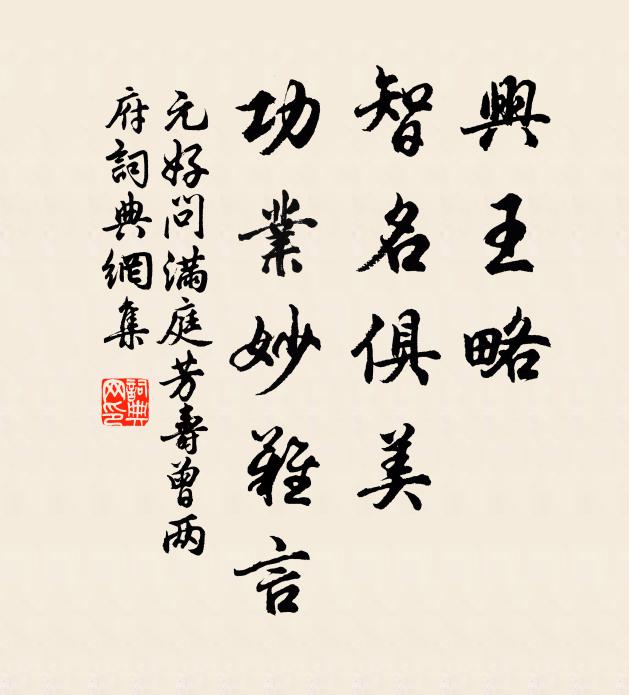 興王略
智名俱美
功業妙難言
元好問滿庭芳壽曾两
府詞典網集
詞典
网印